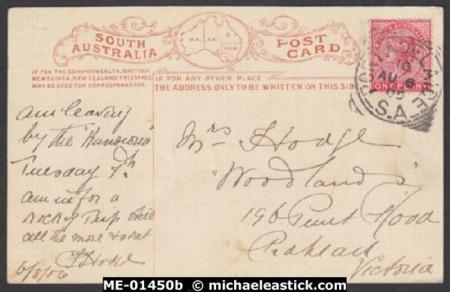 SOUTH AUSTRALIA
POST CARD
IF FOR THE COMMONWEALTH, BRITISH
NEW GUINEA, NEW ZEALAND THIS SPACE
MAY BE USED FOR CORRESPONDENCE.
IF FOR ANY OTHER PLACE
THE ADDRESS ONLY TO BE WRITTEN ON THIS SIDE
ONE PENNY
PORT ADELAIDE
10
AU 6
S.A.
am leaving
by the
Tuesday 7th
am in for a
rocky trip
all the more
Hodge
6/8/06
Mrs Hodge
"Woodlands"
196 Punt Road
Prahran
Victoria
ME-01450b michaeleastick.com